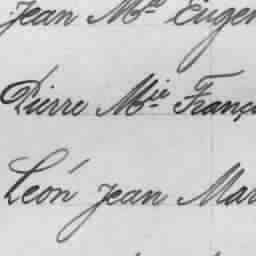 Jean Mie Eugen
Pierre Mie Franç
Léon Jean Mar